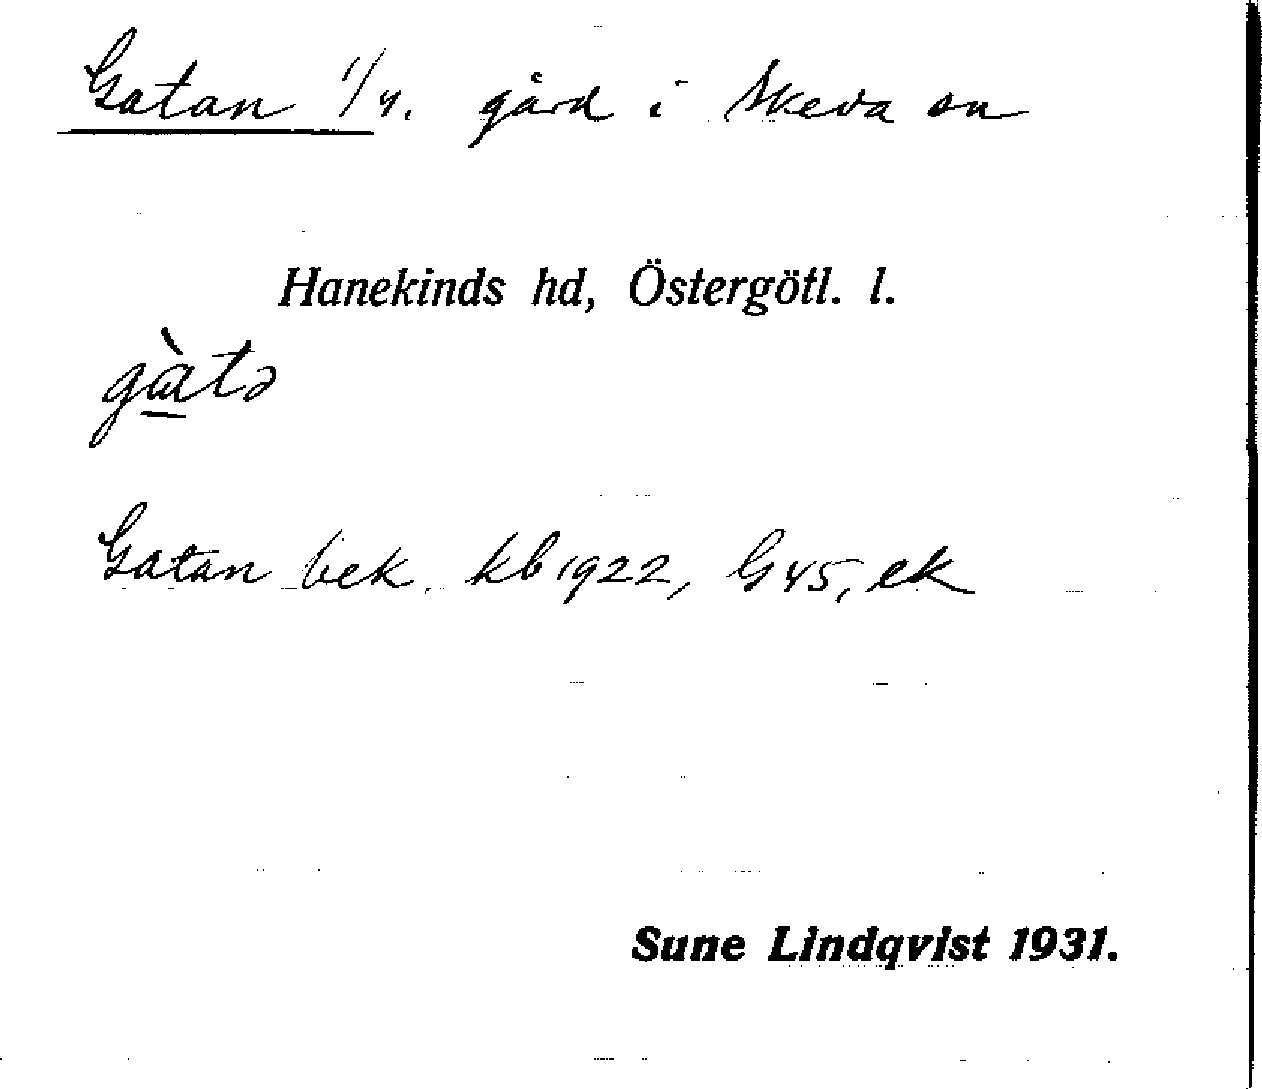 Gatan 1/4. gård i Skeda sn
Hanekinds hd, Östergötl. l.
gàtə
Gatan bek. kb 1922, G 45, ek
Sune Lindqvist 1931.